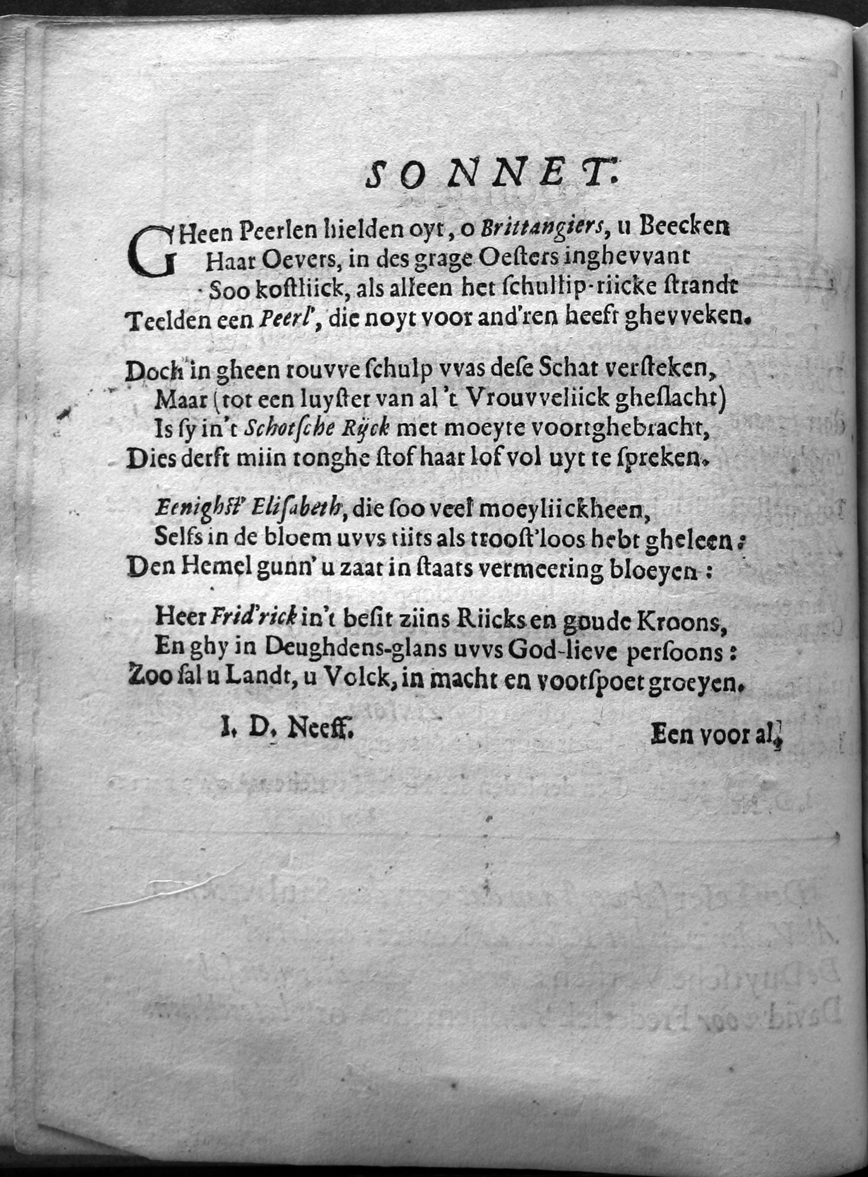 SONNET.
GHeen Peerlen hielden oyt, o Brittangiers, u Beecken
Haar Oevers, in des grage Oeſters inghevvant
Soo koſtliick, als alleen het ſchullip-riicke ſtrandt
Teelden een Peerl', die noyt voor and'ren heeft ghevveken.
Doch in gheen rouvve ſchulp vvas deſe Schat verſteken,
Maar (tot een luyſter van al 't Vrouvveliick gheſlacht)
Is ſy in't Schotſche Rijck met moeyte voortghebracht,
Dies derft miin tonghe ſtof haar lof vol uyt te ſpreken.
Eenighſt' Eliſabeth, die ſoo veel moeyliickheen,
Selfs in de bloem uvvs tiits als trooſt'loos hebt gheleen:
Den Hemel gunn' u zaat in ſtaats vermeering bloeyen:
Heer Frid'rick in't beſit ziins Riicks en goude Kroons,
En ghy in Deughdens-glans uvvs God-lieve perſoons:
Zoo ſal u Landt, u Volck, in macht en vootſpoet groeyen.
I. D. Neeff. Een voor al,